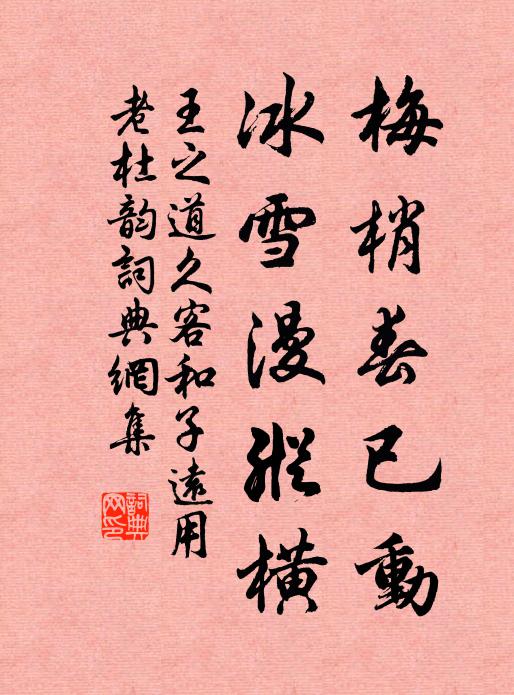 梅梢春已動
冰雪漫縱橫
王之道久客和子遠用
老杜韻詞典網集
詞典網印